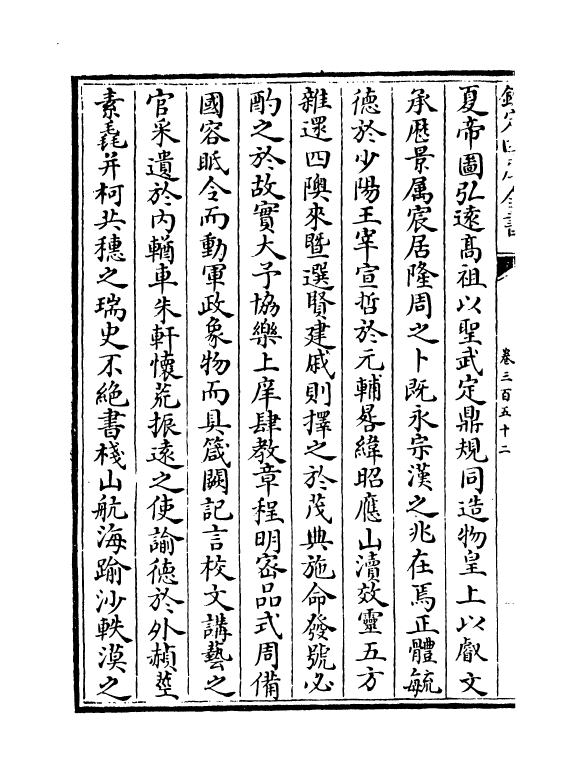 欽定四庫全書
卷三百五十二
夏帝圖弘遠髙祖以聖武定鼎規同造物皇上以叡文
承厯景属宸居隆周之卜既永宗漢之兆在焉正體毓
徳於少陽王宰宣哲於元輔晷緯昭應山瀆效靈五方
雜遝四隩來暨選賢建戚則擇之於茂典施命發號必
酌之於故實大予協樂上庠肆教章程明宻品式周備
國容眡令而動軍政象物而具箴闕記言校文講藝之
官采遺於內輶車朱軒懷荒振遠之使諭徳於外赬莖
素毳并柯共穗之瑞史不絶書棧山航海踰沙軼漠之